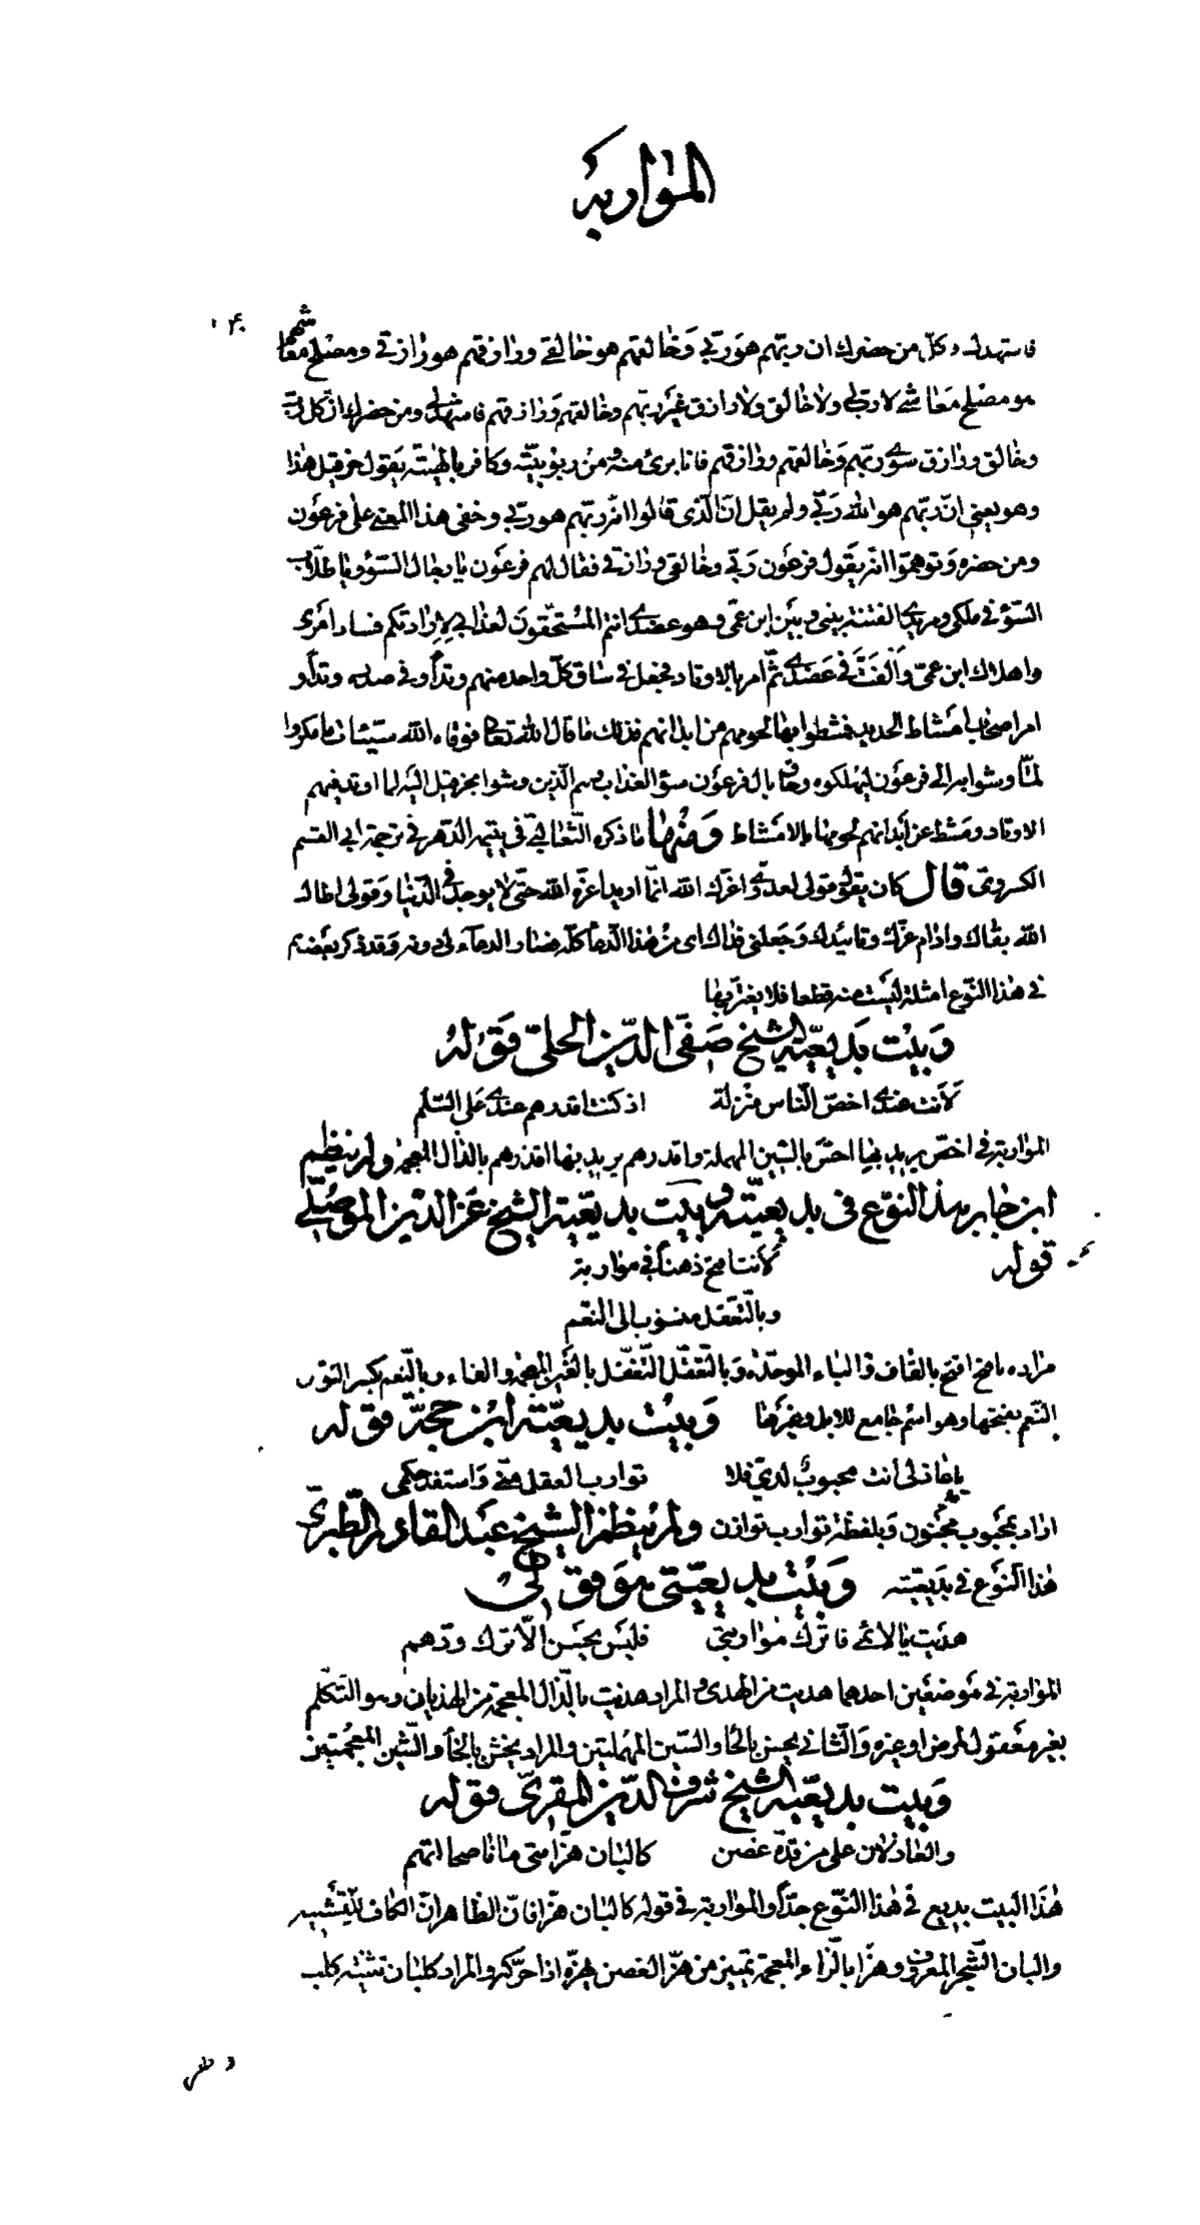 المواربة
فاستهدك وكل من حضرك ان ربهم هو ربي وخالقهم هو خالقي ورازقهم هو رازقي ومصلح معاشهم
هو مصلح معاشي لا رب لي ولا خالق ولا رازق غير ربهم وخالقهم ورازقهم فاشهدك ومن حضرك ان كل رب
وخالق ورازق سوى ربهم وخالقهم ورازقهم فانا برئ منه ومن ربوبيته وكافر بالهيته يقول حزقيل هذا
وهو يعني ان ربهم هو الله ربي ولم يقل ان الذي قالوا انه ربهم هو ربي وخفى هذا المعنى على فرعون
ومن حضره وتوهموا انه يقول فرعون ربي وخالقي ورازقي فقال لهم فرعون يا رجال السوء ويا طلاب
السوء في ملكي ومريدي الفتنة بيني وبين ابن عمي وهو عضدي انتم المستحقون لعذابي لارادتكم فساد امري
واهلاك ابن عمي والفت في عضدي ثم امر بالاوتاد فجعل في ساق كل واحد منهم وتدا وفي صدره وتدا و
امر اصحاب امشاط الحديد فشطوا بها لحومهم من ابدانهم فذلك ما قال الله تعالى فوقاه الله سيئات ما مكروا
لما وشوا به الى فرعون ليهلكوه وحاق بال فرعون سوء العذاب وهم الذين وشوا بحزقيل اليه لما اوتد فيهم
الاوتاد ومشط عن ابدانهم لحومها بالامشاط ومنها ما ذكره الثعالبي في يتيمة الدهر في ترجمة ابي القسم
الكروي قال كان يقول قولى لعدوي اعزك الله انما اريد اعزه الله حتى لا يوجد في الدنيا وقولى اطال
الله بقاك وادام عزك وتاييدك وجعلني فداك اى من هذا الدعا كله وهذا والدعاء لى دونه وقد ذكر بعضهم
في هذا النوع امثلة ليست منه قطعا فلا يغتر بها
وبيت بديعية الشيخ صفى الدين الحلى قوله
لانت عندى اخص الناس منزلة اذ كنت اقدرهم عندى على السلم
المواربة في اخص يريد بها اخس بالسين المهملة واقدرهم يريد بها اقذرهم بالذال المعجمة ولم ينظم
ابن جابر هذا النوع فى بديعيته وبيت بديعية الشيخ عز الدين الموصلى
قوله لانت افتح ذهنا في مواربة
وبالتعقل منسوب الى النعم
مراده بافتح اقبح بالقاف والباء الموحدة وبالتعقل التغفل بالغين المعجمة والفاء وبالنعم بكسر النون
النعم بفتحها وهو اسم جامع للابل وغيرها وبيت بديعية ابن حجة قوله
يا عاذلى انت محبوب لدي فلا توارب العقل مني واستفد حكمى
اراد بمحبوب مجنون وبلفظة توارب توازن ولم ينظم الشيخ عبد القادر الطبري
هذا النوع في بديعيته وبيت بديعيتى هو قولى
هديت يا لائمي فاترك مواربتي فليس يحسن الا ترك ودهم
المواربة في موضعين احدهما هديت من الهدى والمراد هذيت بالذال المعجمة من الهذيان وهو التكلم
بغير معقول لمرض او غيره والثاني يحسن بالحا والسين المهملتين والمراد يخشن بالخا والشين المعجمتين
وبيت بديعية الشيخ شرف الدين المقري قوله
والعاذلان على من قده غصن كالبان هزا متى ما ناصحا اتهم
هذا البيت بديع في هذا النوع جدا والمواربة في قوله كالبان هزا فان الظاهر ان الكاف للتشبيه
والبان الشجر المعروف وهزا بالزاء المعجمة تمييز من هز الغصن يهزه اذا حركه والمراد كلبان تثنية كلب